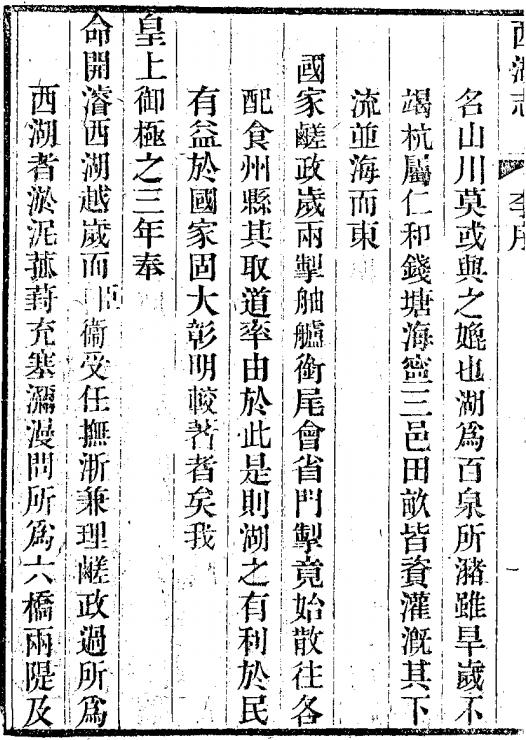 西湖志 李序
名山川莫或與之媲也湖爲百泉所瀦雖旱歲不
竭杭屬仁和錢塘海寧三邑田畝皆賚灌漑其下
流並海而東
國家鹾政歲兩掣舳艫銜尾會省門掣竟始散往各
配食州縣其取道率由於此是則湖之有利於民
有益於國家固大彰明較著者矣我
皇上御極之三年奉
命開濬西湖越歲而臣衞受任撫浙兼理鹾政過所爲
西湖者淤泥菰葑充塞瀰漫問所爲六橋兩隄及